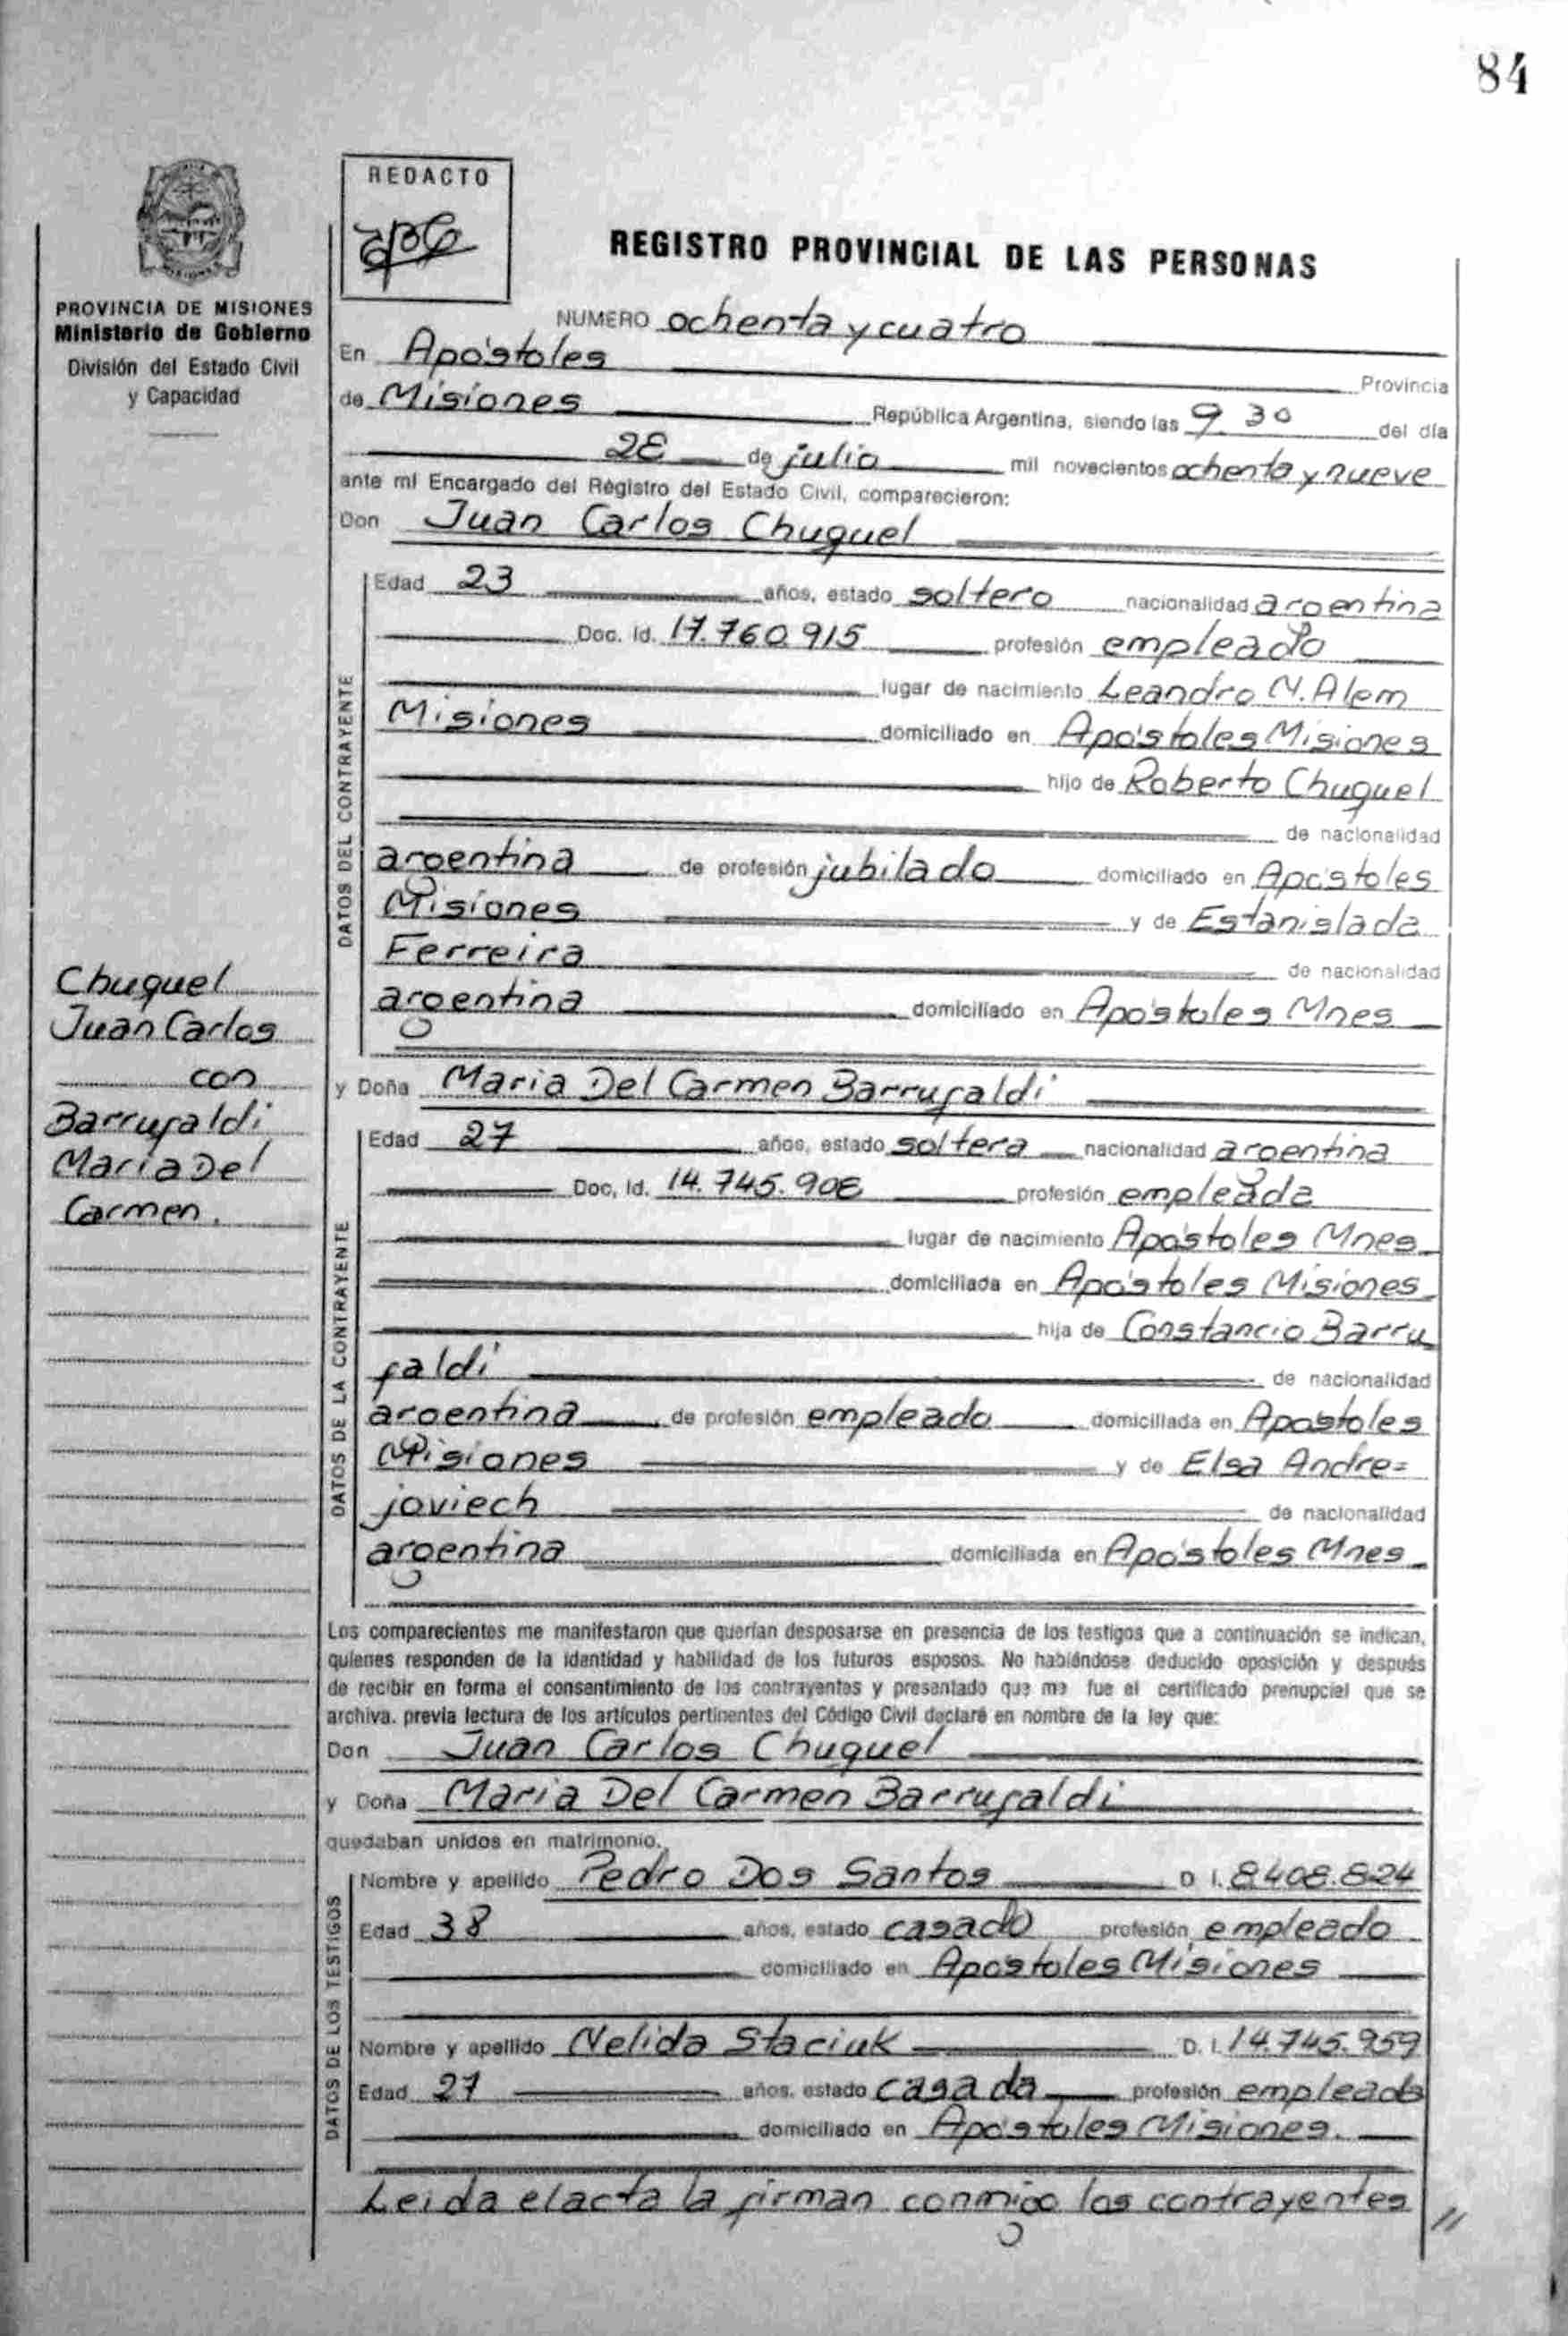 84
REDACTO
REGISTRO PROVINCIAL DE LAS PERSONAS
PROVINCIA DE MISIONES
Ministerio de Gobierno
División del Estado Civil
y Capacidad
NUMERO ochenta y cuatro
En Apóstoles Provincia
de Misiones República Argentina, siendo las 9 30 del día
28 de julio mil novecientos ochenta y nueve
ante mí Encargado del Registro del Estado Civil, comparecieron:
Don Juan Carlos Chuquel
DATOS DEL CONTRAYENTE
Edad 23 años, estado soltero nacionalidad argentina
Doc. Id. 17.760.915 profesión empleado
lugar de nacimiento Leandro N. Alem
Misiones domiciliado en Apóstoles Misiones
hijo de Roberto Chuquel
de nacionalidad
argentina de profesión jubilado domiciliado en Apóstoles
Misiones y de Estanislada
Ferreira de nacionalidad
argentina domiciliado en Apóstoles Mnes
Chuquel
Juan Carlos
con
Barrufaldi
Maria Del
Carmen.
y Doña Maria Del Carmen Barrufaldi
DATOS DE LA CONTRAYENTE
Edad 27 años, estado soltera nacionalidad argentina
Doc, Id. 14.745.908 profesión empleada
lugar de nacimiento Apóstoles Mnes
domiciliada en Apóstoles Misiones
hija de Constancio Barru
faldi de nacionalidad
argentina de profesión empleado domiciliada en Apóstoles
Misiones y de Elsa Andre=
joviech de nacionalidad
argentina domiciliada en Apóstoles Mnes
Los comparecientes me manifestaron que querían desposarse en presencia de los testigos que a continuación se indican,
quienes responden de la identidad y habilidad de los futuros esposos. No habiéndose deducido oposición y después
de recibir en forma el consentimiento de los contrayentes y presentado que me fue el certificado prenupcial que se
archiva. previa lectura de los artículos pertinentes del Código Civil declaré en nombre de la ley que:
Don Juan Carlos Chuquel
y Doña Maria Del Carmen Barrufaldi
quedaban unidos en matrimonio.
DATOS DE LOS TESTIGOS
Nombre y apellido Pedro Dos Santos D I. 8408.824
Edad 38 años, estado casado profesión empleado
domiciliado en Apóstoles Misiones
Nombre y apellido Nelida Staciuk D. I. 14.745.959
Edad 27 años, estado casada profesión empleada
domiciliado en Apóstoles Misiones.
Leida el acta la firman conmigo los contrayentes //